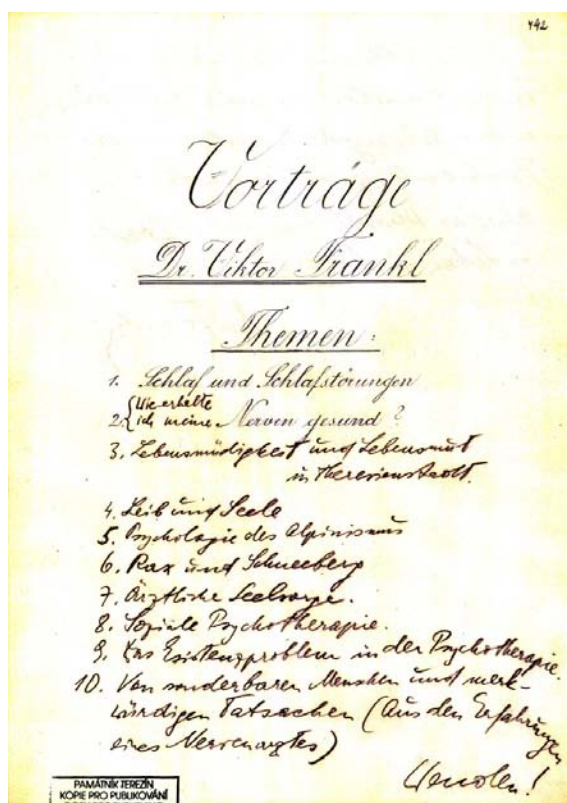 442
Vorträge
Dr. Viktor Frankl
Themen:
1. Schlaf und Schlafstörungen
2. {Wie erhalte
ich meine Nerven gesund?
3. Lebensmüdigkeit und Lebensmut
in Theresienstadt.
4. Leib und Seele
5. Psychologie des Alpinismus
6. Rax und Schneeberg
7. Ärztliche Seelsorge.
8. Soziale Psychotherapie.
9. Das Existenzproblem in der Psychotherapie.
10. Von sonderbaren Menschen und merk-
würdigen Tatsachen (Aus den Erfahrungen
eines Nervenarztes)
PAMÁTNÍK TEREZÍN
KOPIE PRO PUBLIKOVÁNÍ